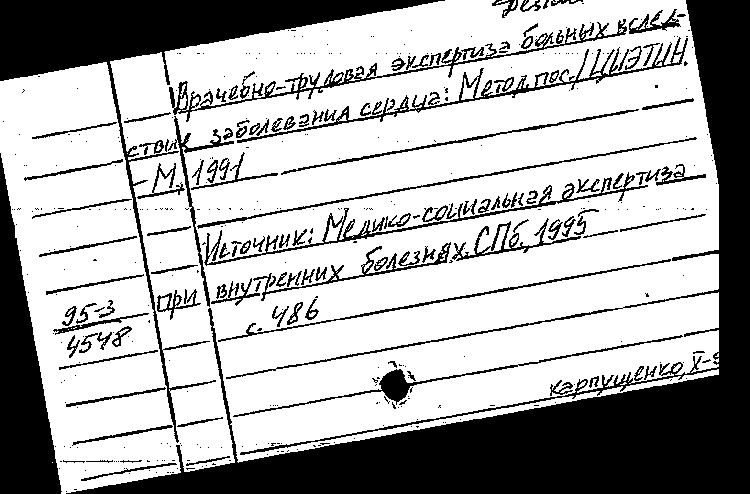 Врачебно-трудовая экспертиза больных вслед-
ствие заболевания сердца: Метод. пос./ЦИЭТИН.
- М., 1991
Источник: Медико-социальная экспертиза
при внутренних болезнях. СПб., 1995
с. 486
95-3
4548
Карпущенко, X-9